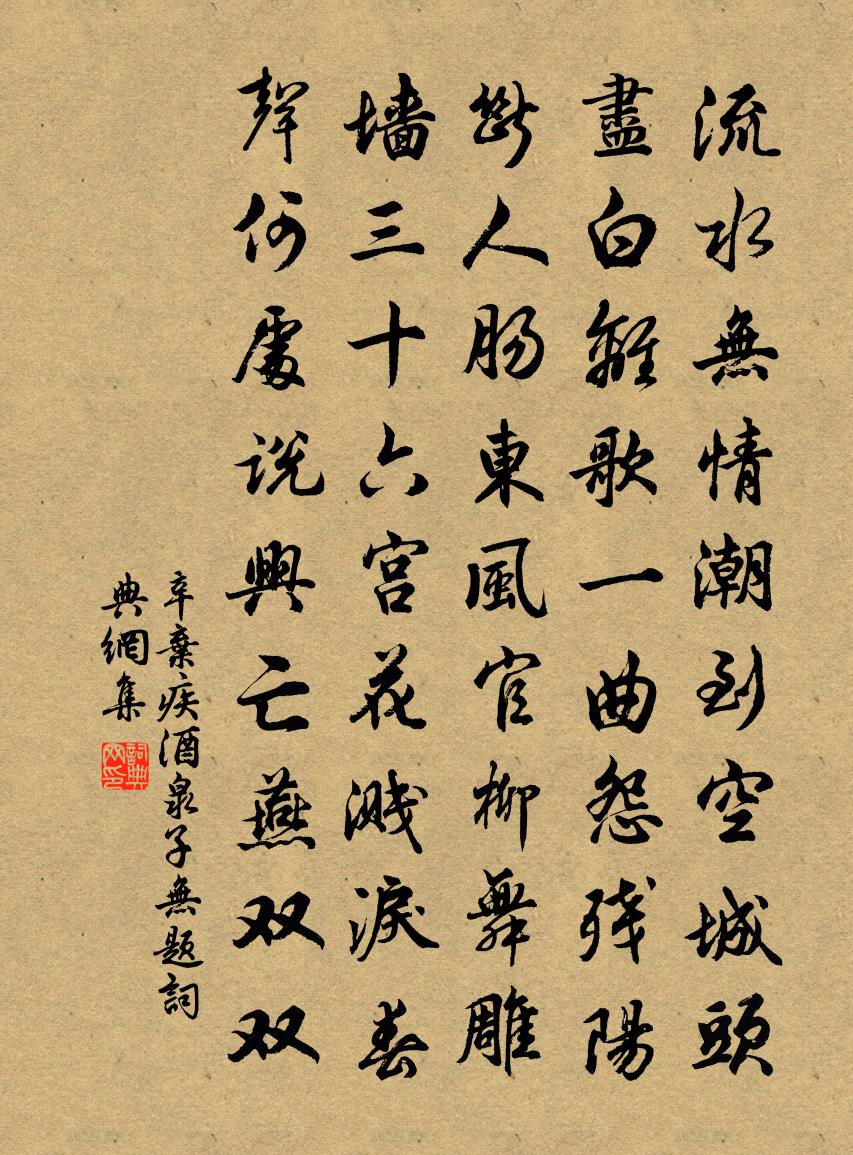 流水無情潮到空城頭
盡白離歌一曲怨殘陽
斷人腸東風官柳舞雕
墙三十六宫花溅淚春
聲何處説興亡燕双双
辛棄疾酒泉子無題詞
典網集
詞典
网印